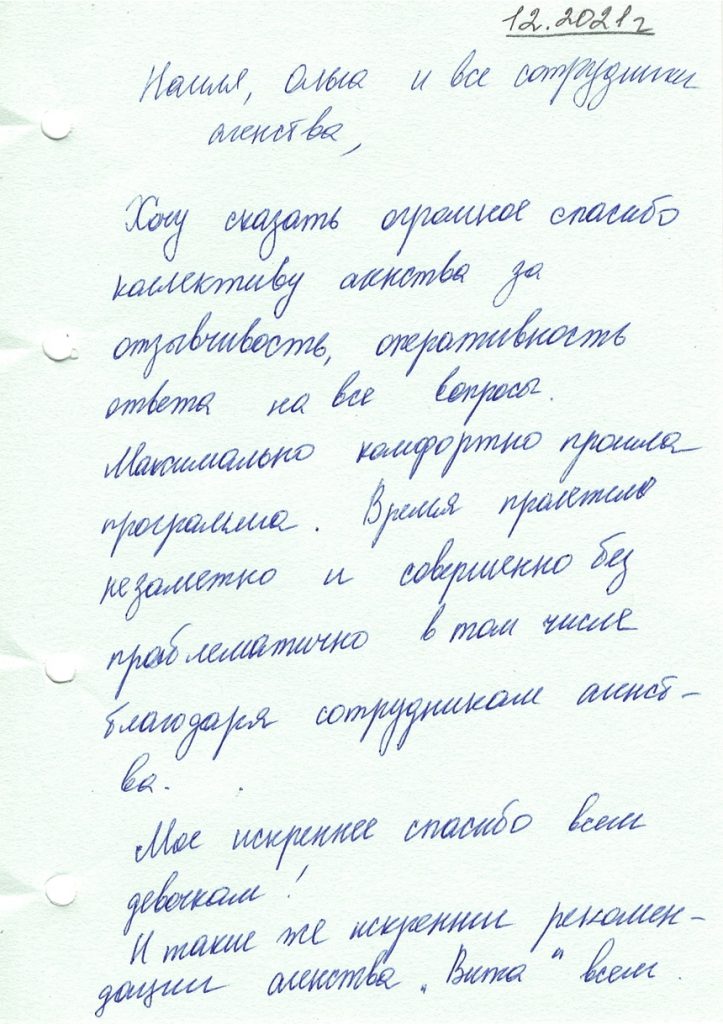 12.2021г
Наиля, Ольга и все сотрудники
агенства,
Хочу сказать огромное спасибо
коллективу агенства за
отзывчивость, оперативность
ответа на все вопросы.
Максимально комфортно прошла
программа. Время пролетело
незаметно и совершенно без
проблематично в том числе
благодаря сотрудникам агенст-
ва.
Мое искреннее спасибо всем
девочкам!
И такие же искренние рекомен-
дации агенства „Вита“ всем.